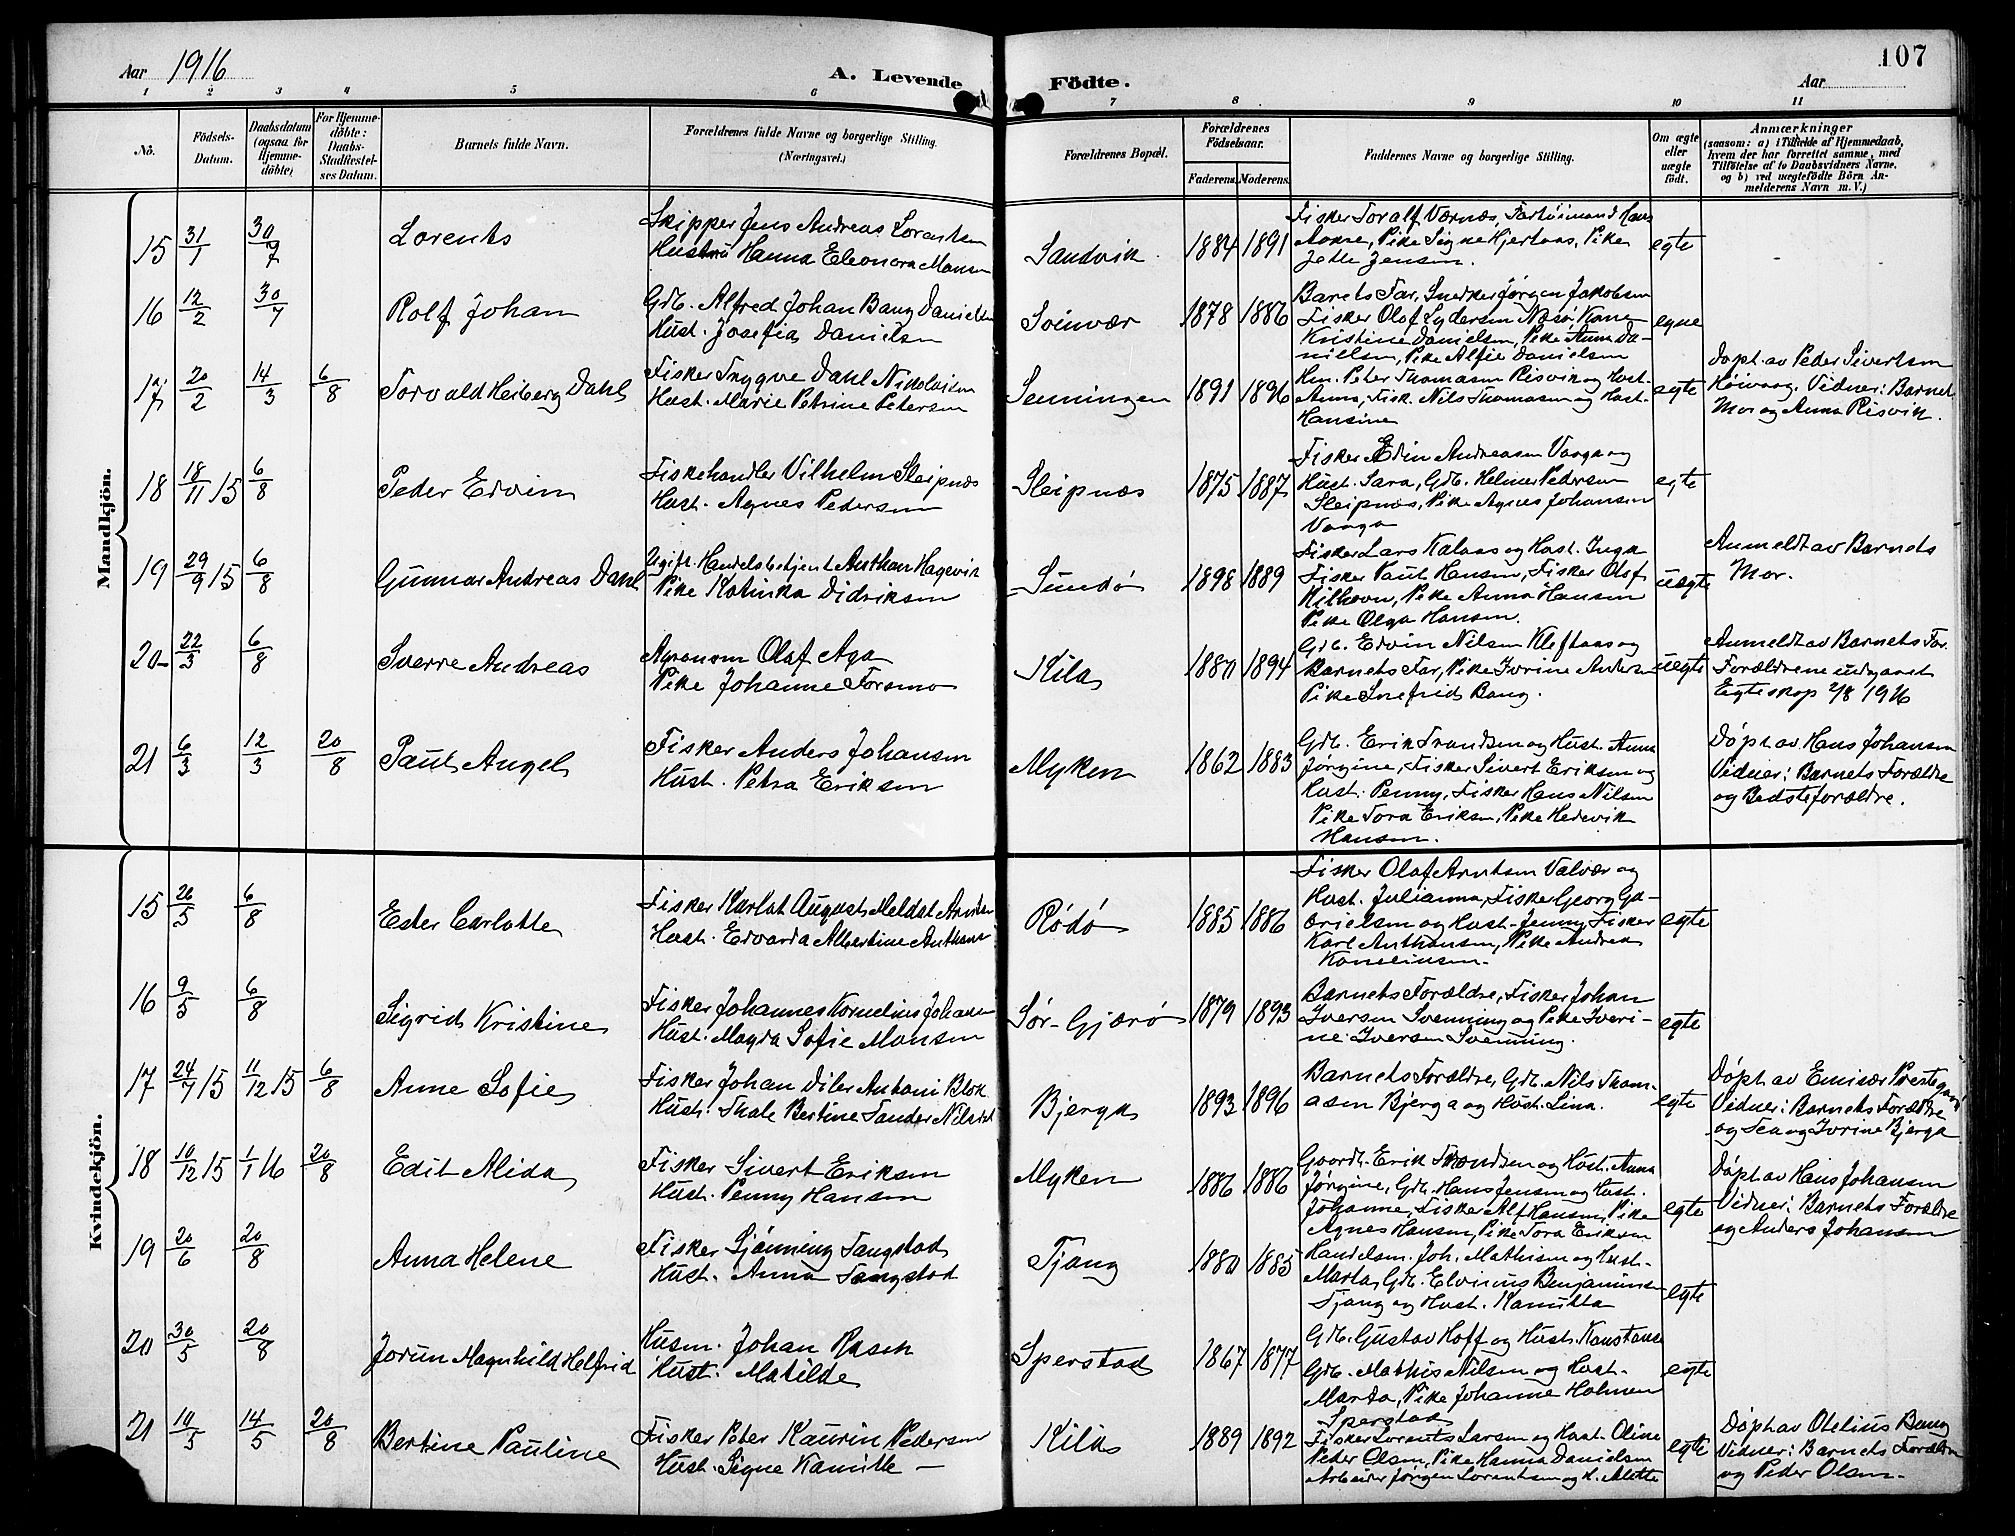 Aar 1916
A. Levende Födte.
Aar
107
1 2 3 4 5 6 7 8 9 10 11
No.
Födsels-Datum.
Daabsdatum (ogsaa for Hjemme-döbte)
For Hjemme-döbte: Daabs-Stadfestel-ses Datum.
Barnets fulde Navn.
Forældrenes fulde Navne og borgerlige Stilling.
(Næringsvei.)
Forældrenes Bopæl.
Forældrenes Födselsaar.
Faderens. Moderens.
Faddernes Navne og borgerlige Stilling.
Om ægte eller uægte födt.
Anmærkninger
(saasom: a) i Tilfælde af Hjemmedaab,
hvem der har forrettet samme, med
Tilföielse af to Daabsvidners Navne,
og b) ved uægtefödte Börn An-
melderens Navn m. V.)
Mandkjön.
15 31/1 30/7 Lorents
Skipper Jens Andreas Lorentsen
Hustru Hanna Eleonora Monsen
Sandvik. 1884 1891
Fisker Toralf Værnæs, Hans
Pike Signe Hjertaas, Pike
Jette Jensen.
egte
16 12/2 30/7 Rolf Johan
Gdb. Alfred Johan Bang Danielsen
Hust. Josefia Danielsen
Svinvær 1878 1886
Barnets Far, Snedker Jørgen Jakobsen
Fisker Olaf Lydersen Næsø, Kone
Kristine Danielsen, Pike Anna Da-
nielsen, Pike Alfie Danielsen
egne
17 20/2 14/3 6/8 Torvald Heiberg Dahl
Fisker Trygve Dahl Nikolaisen
Hust. Marie Petrine Petersen
Selningen 1891 1896
Hm. Peter Thomasen Risvik og Hust.
Anna, Fisk. Nils Thomasen og Hust.
Hansine
egte
Døpt av Peder Sivertsen
Høivaag. Vidner: Barnets
Mor og Anna Risvik.
18 18/11 15 6/8 Peder Edvin
Fiskehandler Vilhelm Sleipnæs
Hust. Agnes Pedersen
Sleipnæs 1875 1887
Fisker Edin Andreasen Vaaga og
Hust. Sara, Gdb. Helmer Pedersen
Sleipnæs, Pike Agnes Johansen
Vaaga
egte
19 29/9 15 6/8 Gunnar Andreas Dahl
Ugift Handelsbetjent Anthon Hagevik
Pike Katinka Didriksen
Sundø 1898 1889
Fisker Lars Kalaas og Hust. Inga
Fisker Paul Hansen, Fisker Olaf
Kilhavn, Pike Anna Hansen
Pike Olga Hansen.
uegte
Anmeldt av Barnets
Mor.
20 22/3 6/8 Sverre Andreas
Agronom Olaf Aga
Pike Johanne Forsmo
Kila 1880 1894
Gdb. Edvin Nilsen Kleftaas og
Barnets Far, Pike Iverine Andersen
Pike Snefrid Bang.
uegte
Anmeldt av Barnets Far.
Forældrene indgaaet
Egteskap 2/8 1916
21 6/3 12/3 20/8 Paul Angel
Fisker Anders Johansen
Hust. Petra Eriksen
Myken 1862 1883
Gdb. Erik Trondsen og Hust. Anna
Jørgine, Fisker Sivert Eriksen og
Hust. Penny, Fisker Hans Nilsen
Pike Tora Eriksen, Pike Hedevik
Hansen.
Døpt av Hans Johansen
Vidner: Barnets Forældre
og Bedsteforældre.
Kvindekjön.
15 26/5 6/8 Ester Carlotte
Fisker Karlot August Meldal Arntsen
Hust. Edvarda Albertine Anthons
Rødø 1885 1886
Fisker Olaf Arntsen Valvær og
Hust. Julianna, Fisker Georg Ga-
brielsen og Hust. Jenny, Fisker
Karl Anthonsen, Pike Andrea
Kornelinsen.
egte
16 9/5 6/8 Sigrid Kristine
Fisker Johannes Kornelius Johansen
Hust. Magda Sofie Monsen
Sør-Gjærø 1879 1893
Barnets Forældre, Fisker Johan
Iversen Svenning og Pike Iveri-
ne Iversen Svenning.
egte
17 24/7 15 11/12 15 6/8 Anne Sofie
Fisker Johan Diler Antoni Blok
Hust. Thale Bertine Tander
Bjerga 1893 1896
Barnets Forældre, Gdb. Nils Thom-
asen Bjerga og Hust. Lina.
egte
Døpt av Emisær Prestegaard
Vidner: Barnets Forældre
og Lea og Iverine Bjerga
18 10/12 15 1/1 16 20/8 Edit Alida
Fisker Sivert Eriksen
Hust. Penny Hansen
Myken 1886 1886
Gaardb. Erik Trondsen og Hust. Anna
Jørgine, Gdb. Hans Jensen og Hust.
Johanne, Fisker Alf Hansen, Pike
Agnes Hansen, Pike Tora Eriksen
egte
Døpt av Hans Johansen
Vidner: Barnets Forældre
og Anders Johansen
19 20/6 20/8 Anna Helene
Fisker Sjønning Tangstad
Hust. Anna Tangstad
Tjong 1880 1885
Handelsm. Joh. Mathisen og Hust.
Marta, Gdb. Elvinus Benjaminsen
Tjong og Hust. Kamilla
egte
20 30/5 20/8 Jorun Magnhild Helfrid
Husm. Johan Rasch
Hust. Matilde
Sperstad 1867 1877
Gdb. Gustav Hoff og Hust. Konstanse
Gdb. Mathis Nilsen og Hust.
Marta, Pike Johanne Holmen
Sperstad
egte
21 10/5 14/5 20/8 Bertine Pauline
Fisker Peter Kaurin Pedersen
Hust. Signe Kamille —
Kila 1889 1892
Fisker Lorents Larsen og Hust. Oline
Peder Olsen, Pike Hanna Danielsen
Arbeider Jørgen Lorentsen og H. Alette
egte
Døpt av Otelius Bang
Vidner: Barnets Forældre
og Peder Olsen.